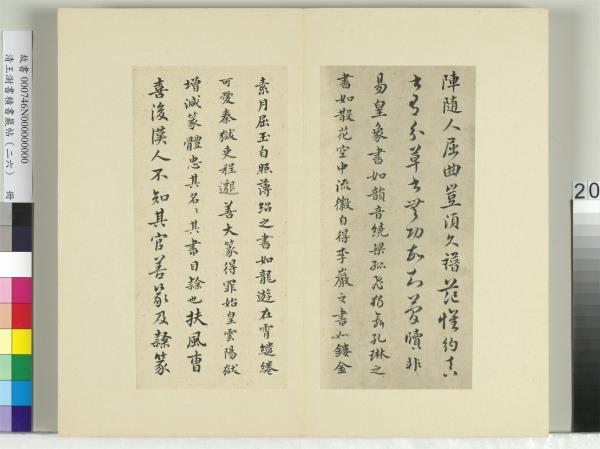 陣随人屈曲豈須久譜范懐約真
書有分草書無功故知簡牘非
易皇象書如韻音繞梁孤飛獨舞孔琳之
書如散花空中流徽自得李巖之書如鏤金
素月屈玉自照薄紹之書如龍遊在霄繾綣
可愛秦獄吏程邈善大篆得罪始皇雲陽獄
增減篆體忠其名〻其書曰隸也扶風曹
喜後漢人不知其官善篆及隸篆
故書000746N000000000
清王澍書積書巖帖（二六） 冊
20